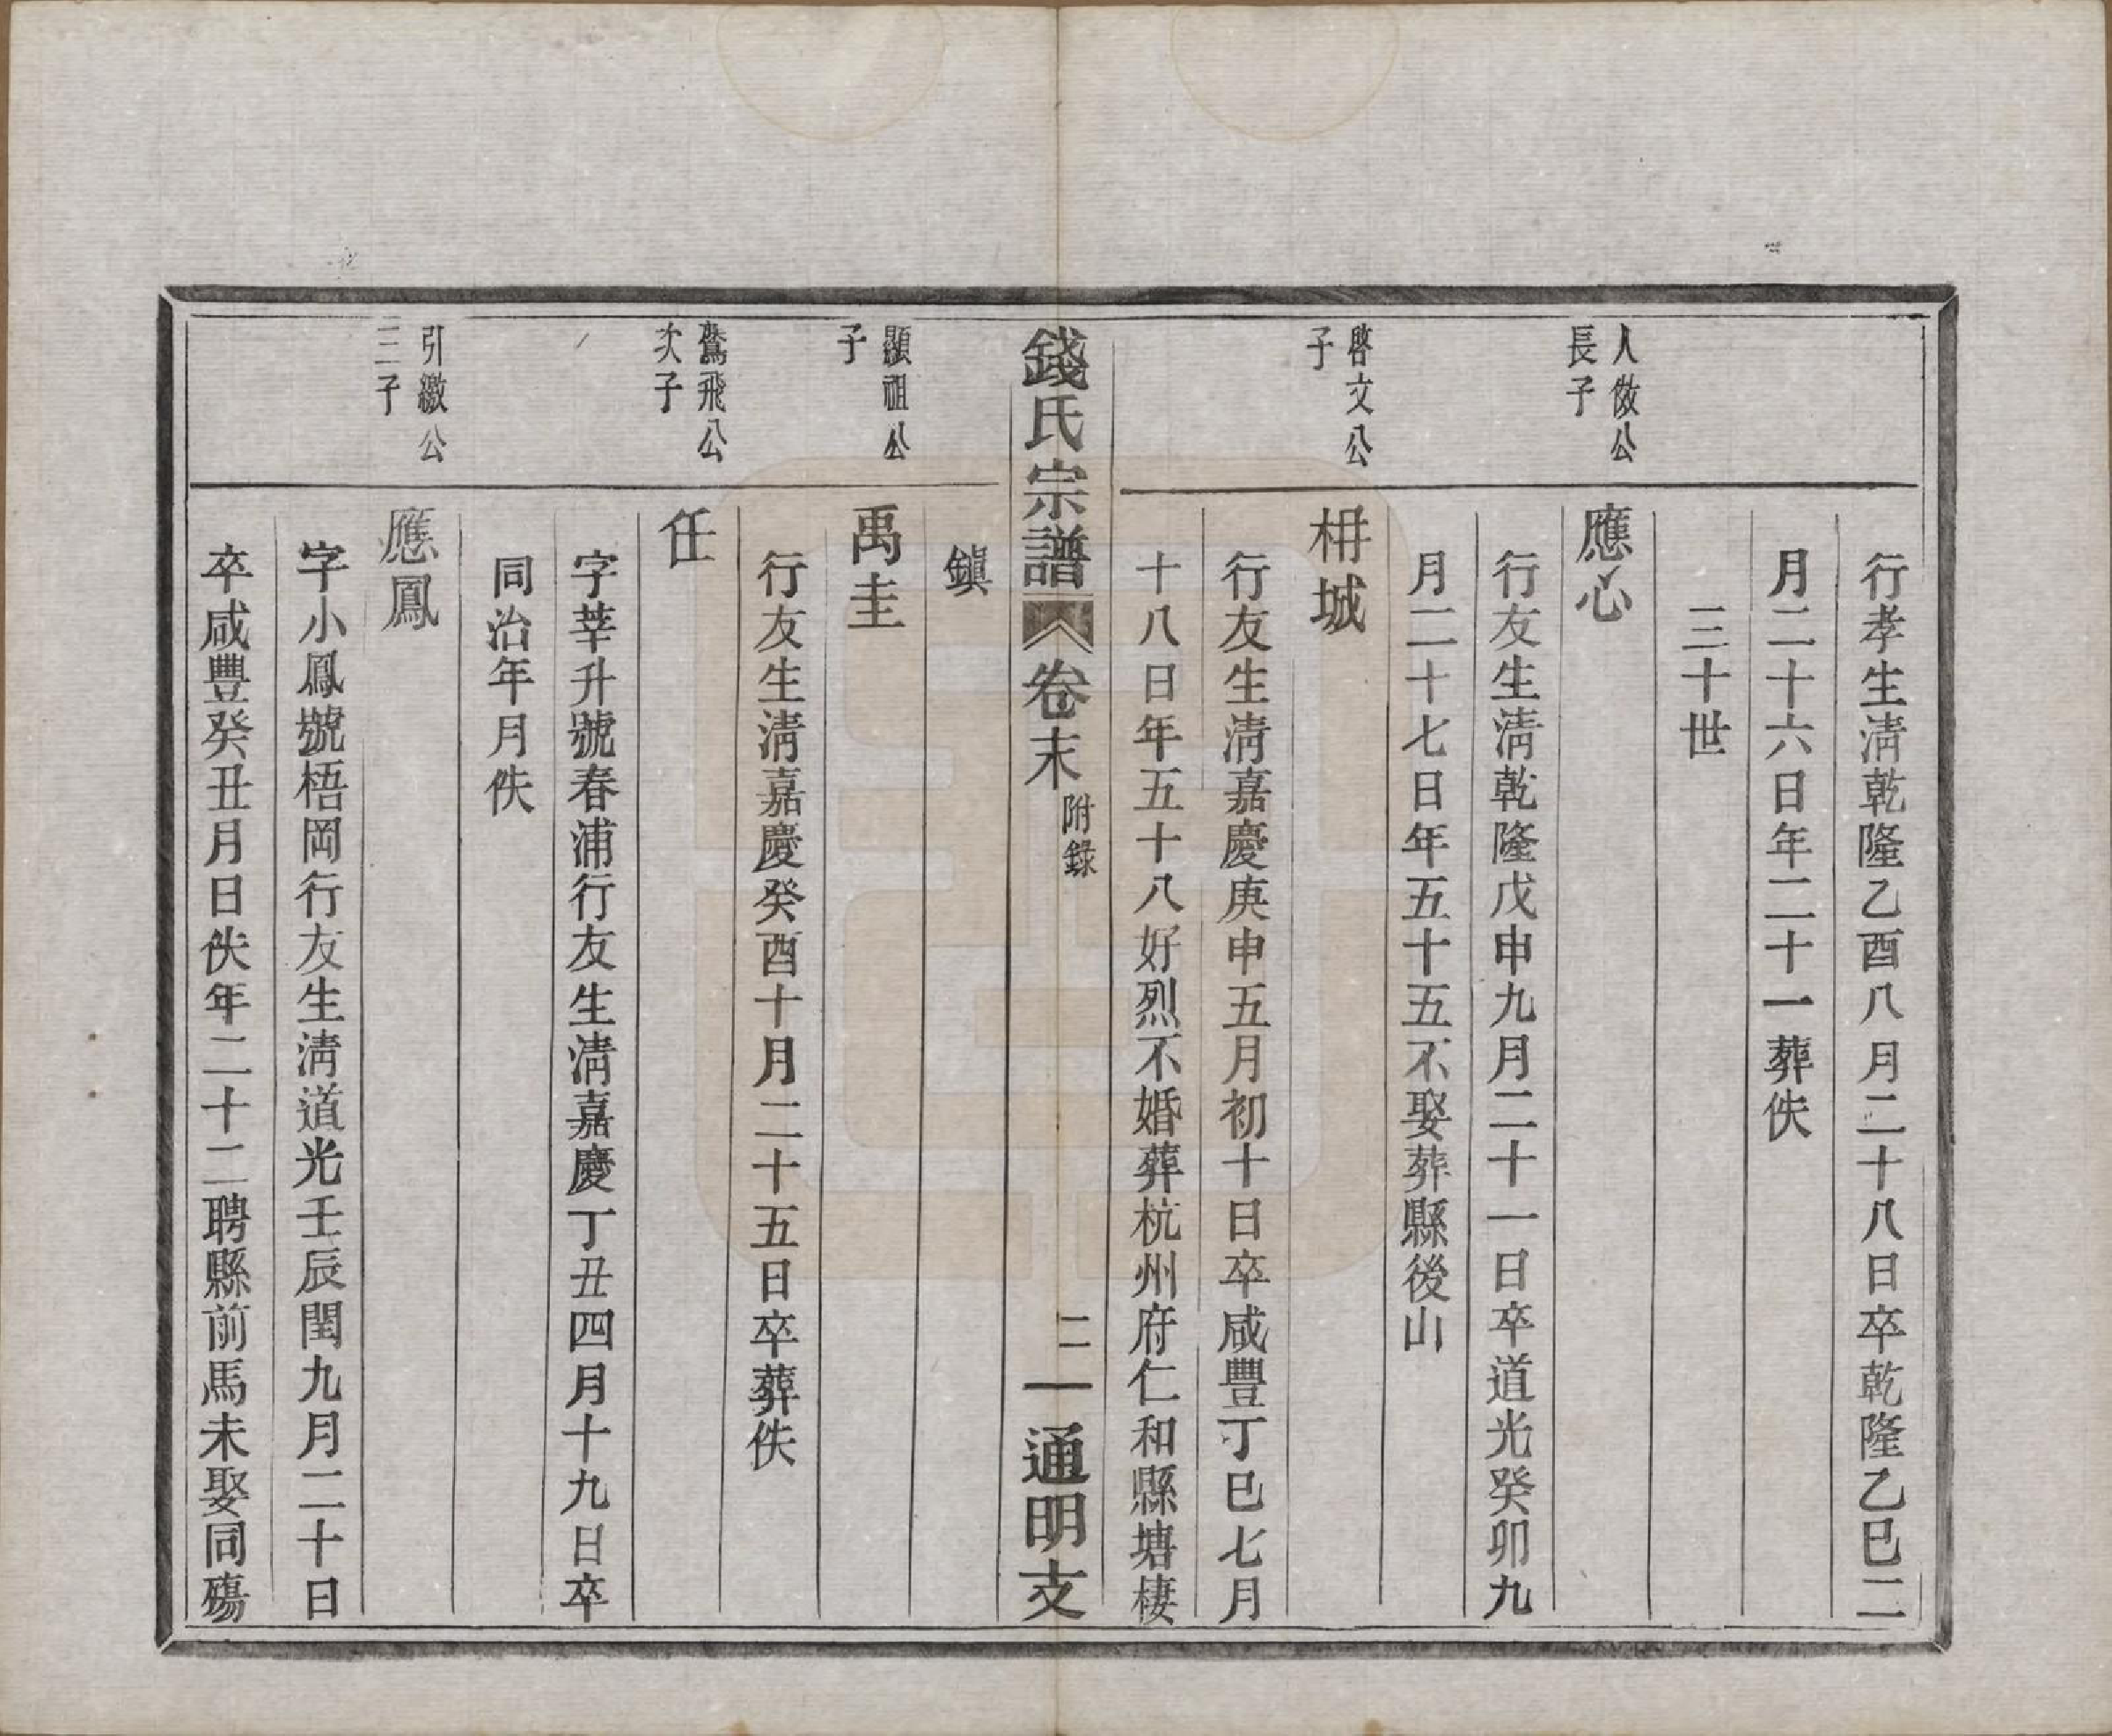 行孝生淸乾隆乙酉八月二十八日卒乾隆乙巳二
月二十六日年二十一葬佚
三十世
人傚公
長子
應心
行友生淸乾隆戊申九月二十一日卒道光癸卯九
月二十七日年五十五不娶葬縣後山
啓文公
子
枏城
行友生淸嘉慶庚申五月初十日卒咸豐丁巳七月
十八日年五十八好烈不婚葬杭州府仁和縣塘棲
錢氏宗譜
卷末
附錄
二
通明支
鎭
顯祖公
子
禹圭
行友生淸嘉慶癸酉十月二十五日卒葬佚
鷟飛公
次子
任
字莘升號春浦行友生淸嘉慶丁丑四月十九日卒
同治年月佚
引繳公
三子
應鳳
字小鳳號梧岡行友生淸道光壬辰閏九月二十日
卒咸豐癸丑月日佚年二十二聘縣前馬未娶同殤